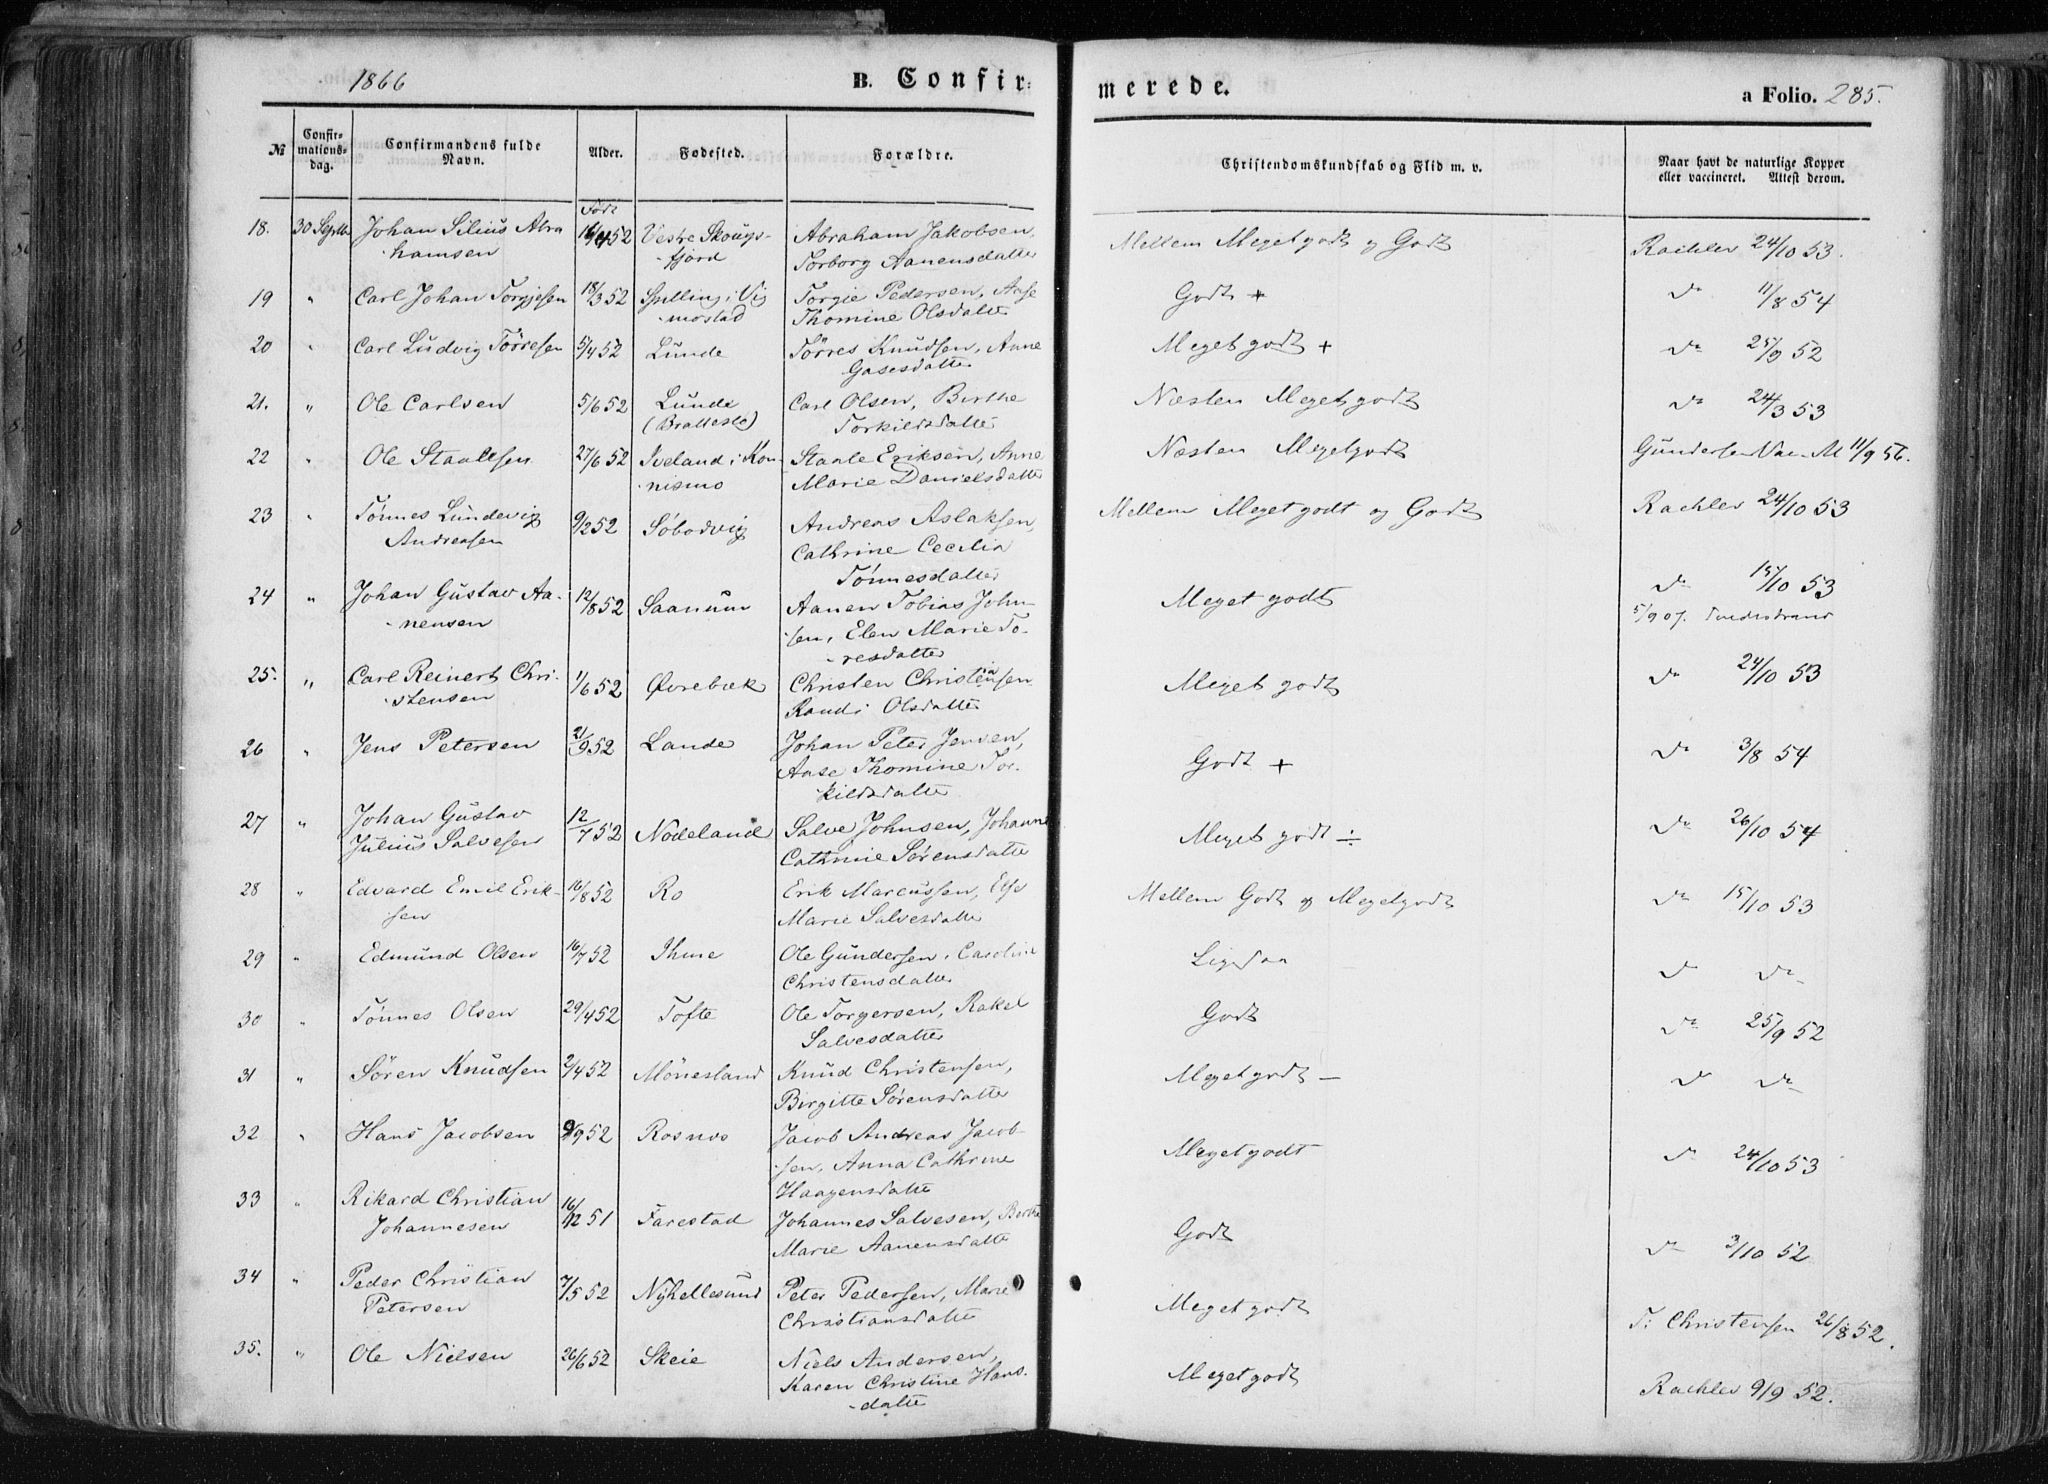 1866 B. Confirmerede. a Folio. 285.
№ Confirmationsdag. Confirmandens fulde Navn. Alder. Fødested. Forældre. Christendomskundskab og Flid m. v. Naar havt de naturlige Kopper eller vaccineret. Attest derom.
Født
18. 30 Septb Johan Silius Abra 16/4 52 Vestre Skougs- Abraham Jakobsen, Mellem Meget godt og Godt Rachlev 24/10 53.
hamsen fjord Torborg Aanensdatter
19 " Carl Johan Torgjesen 18/3 52 Spilling i Vig Torgie Pedersen, Aase Godt + do 11/8 54
mostad Thomine Olsdatter
20 " Carl Ludvig Törresen 5/4 52 Lunde Törres Knudsen, Anne Meget godt + do 25/9 52
Gasesdatter
21. " Ole Carlsen 5/6 52 Lunde Carl Olsen, Berthe Næsten Meget godt do 24/3 53
(Brattestø) Torkildsdatter
22 " Ole Staalesen 27/6 52 Iveland i Kon- Staale Eriksen, Anne Næsten Megetgodt Gundersen Vac. M 11/9 56.
nesmo Marie Danielsdatter
23 " Tönnes Lundevig 9/2 52 Söbodvig Andreas Aslaksen, Mellem Meget godt og Godt Rachlev 24/10 53
Andreasen Cathrine Cecilia
Tönnesdatter
24 " Johan Gustav Aa- 12/8 52 Saanum Aanen Tobias John- Meget godt do 15/10 53
nensen sen, Elen Marie To- 5/9 07. Tvedestrand
resdatter
25. " Carl Reinert Chri- 1/6 52 Øvrebæk Christen Christensen Meget godt do 24/10 53
stensen Randi Olsdatter
26 " Jens Petersen 21/9 52 Lande Johan Peter Jensen, Godt + do 3/8 54
Aase Thomine Tor-
kildsdatter
27 " Johan Gustav 12/7 52 Nodeland Salve Johnsen, Johanne Meget godt ÷ do 26/10 54
Julius Salvesen Cathrine Sörensdatter
28 " Edvard Emil Erik- 16/8 52 Ro Erik Marcussen, Else Mellem Godt og Megetgodt do 15/10 53
sen Marie Salvesdatter
29 " Edmund Olsen 16/7 52 Ihme Ole Gundersen, Caroline Ligesaa do do
Christensdatter
30 " Tönnes Olsen 29/4 52 Tofte Ole Torgersen, Rakel Godt do 25/9 52
Salvesdatter
31 " Sören Knudsen 2/4 52 Mönesland Knud Christensen, Meget godt — do do
Birgitte Sörensdatter
32 " Hans Jacobsen 9/9 52 Rosnes Jacob Andreas Jacob Megetgodt do 24/10 53
sen, Anna Cathrine
Haagensdatter
33 " Rikard Christian 16/12 51 Farestad Johannes Salvesen, Berthe Godt do 3/10 52
Johannesen Marie Aanensdatter
34 " Peder Christian 7/5 52 Nyhellesund Peter Pedersen, Marie Meget godt T. Christensen 26/8 52.
Petersen Christiansdatter
35. " Ole Nielsen 26/6 52 Skeie Niels Andersen, Megetgodt Rachlev 9/9 52.
Karen Christine Hans-
datter